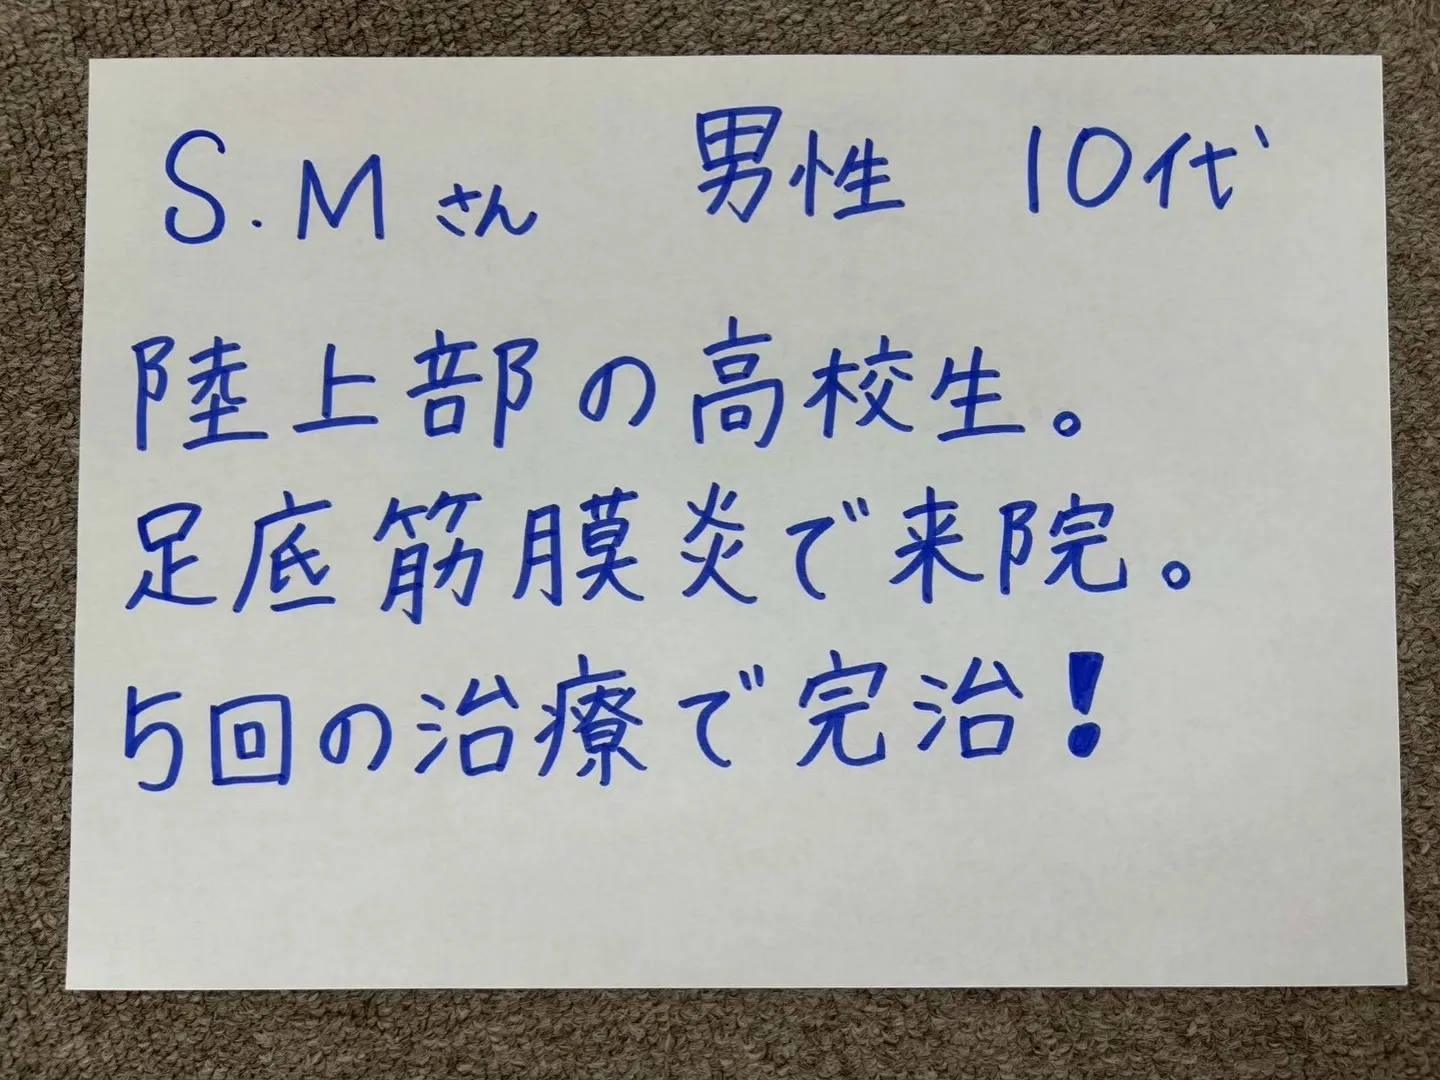 S.Mさん 男性 10代
陸上部の高校生。
足底筋膜炎で来院。
5回の治療で完治！